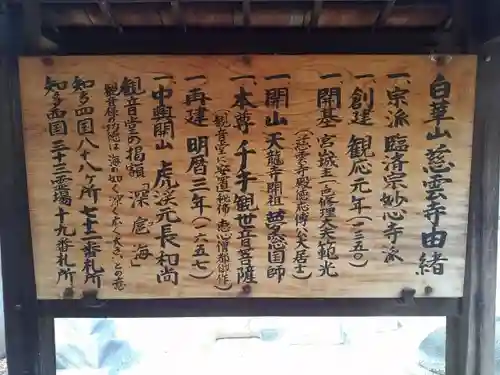 白華山 慈雲寺由緒
一、宗派 臨済宗妙心寺派
一、創建 観応元年(一三五〇)
一、開基 宮城主一色修理大夫範光
(慈雲寺殿徳応信公大居士)
一、開山 天龍寺開祖 夢窓国師
一、本尊 千手観世音菩薩
(観音堂に安置秘佛 恵心僧都御作)
一、再建 明暦三年(一六五七)
一、中興開山 虎渓元長和尚
観音堂の掲額「深広海」
観音様の功徳は海の如く深く広く大きいとの意
知多四国八十八ヶ所 七十二番札所
知多西国三十三霊場 十九番札所